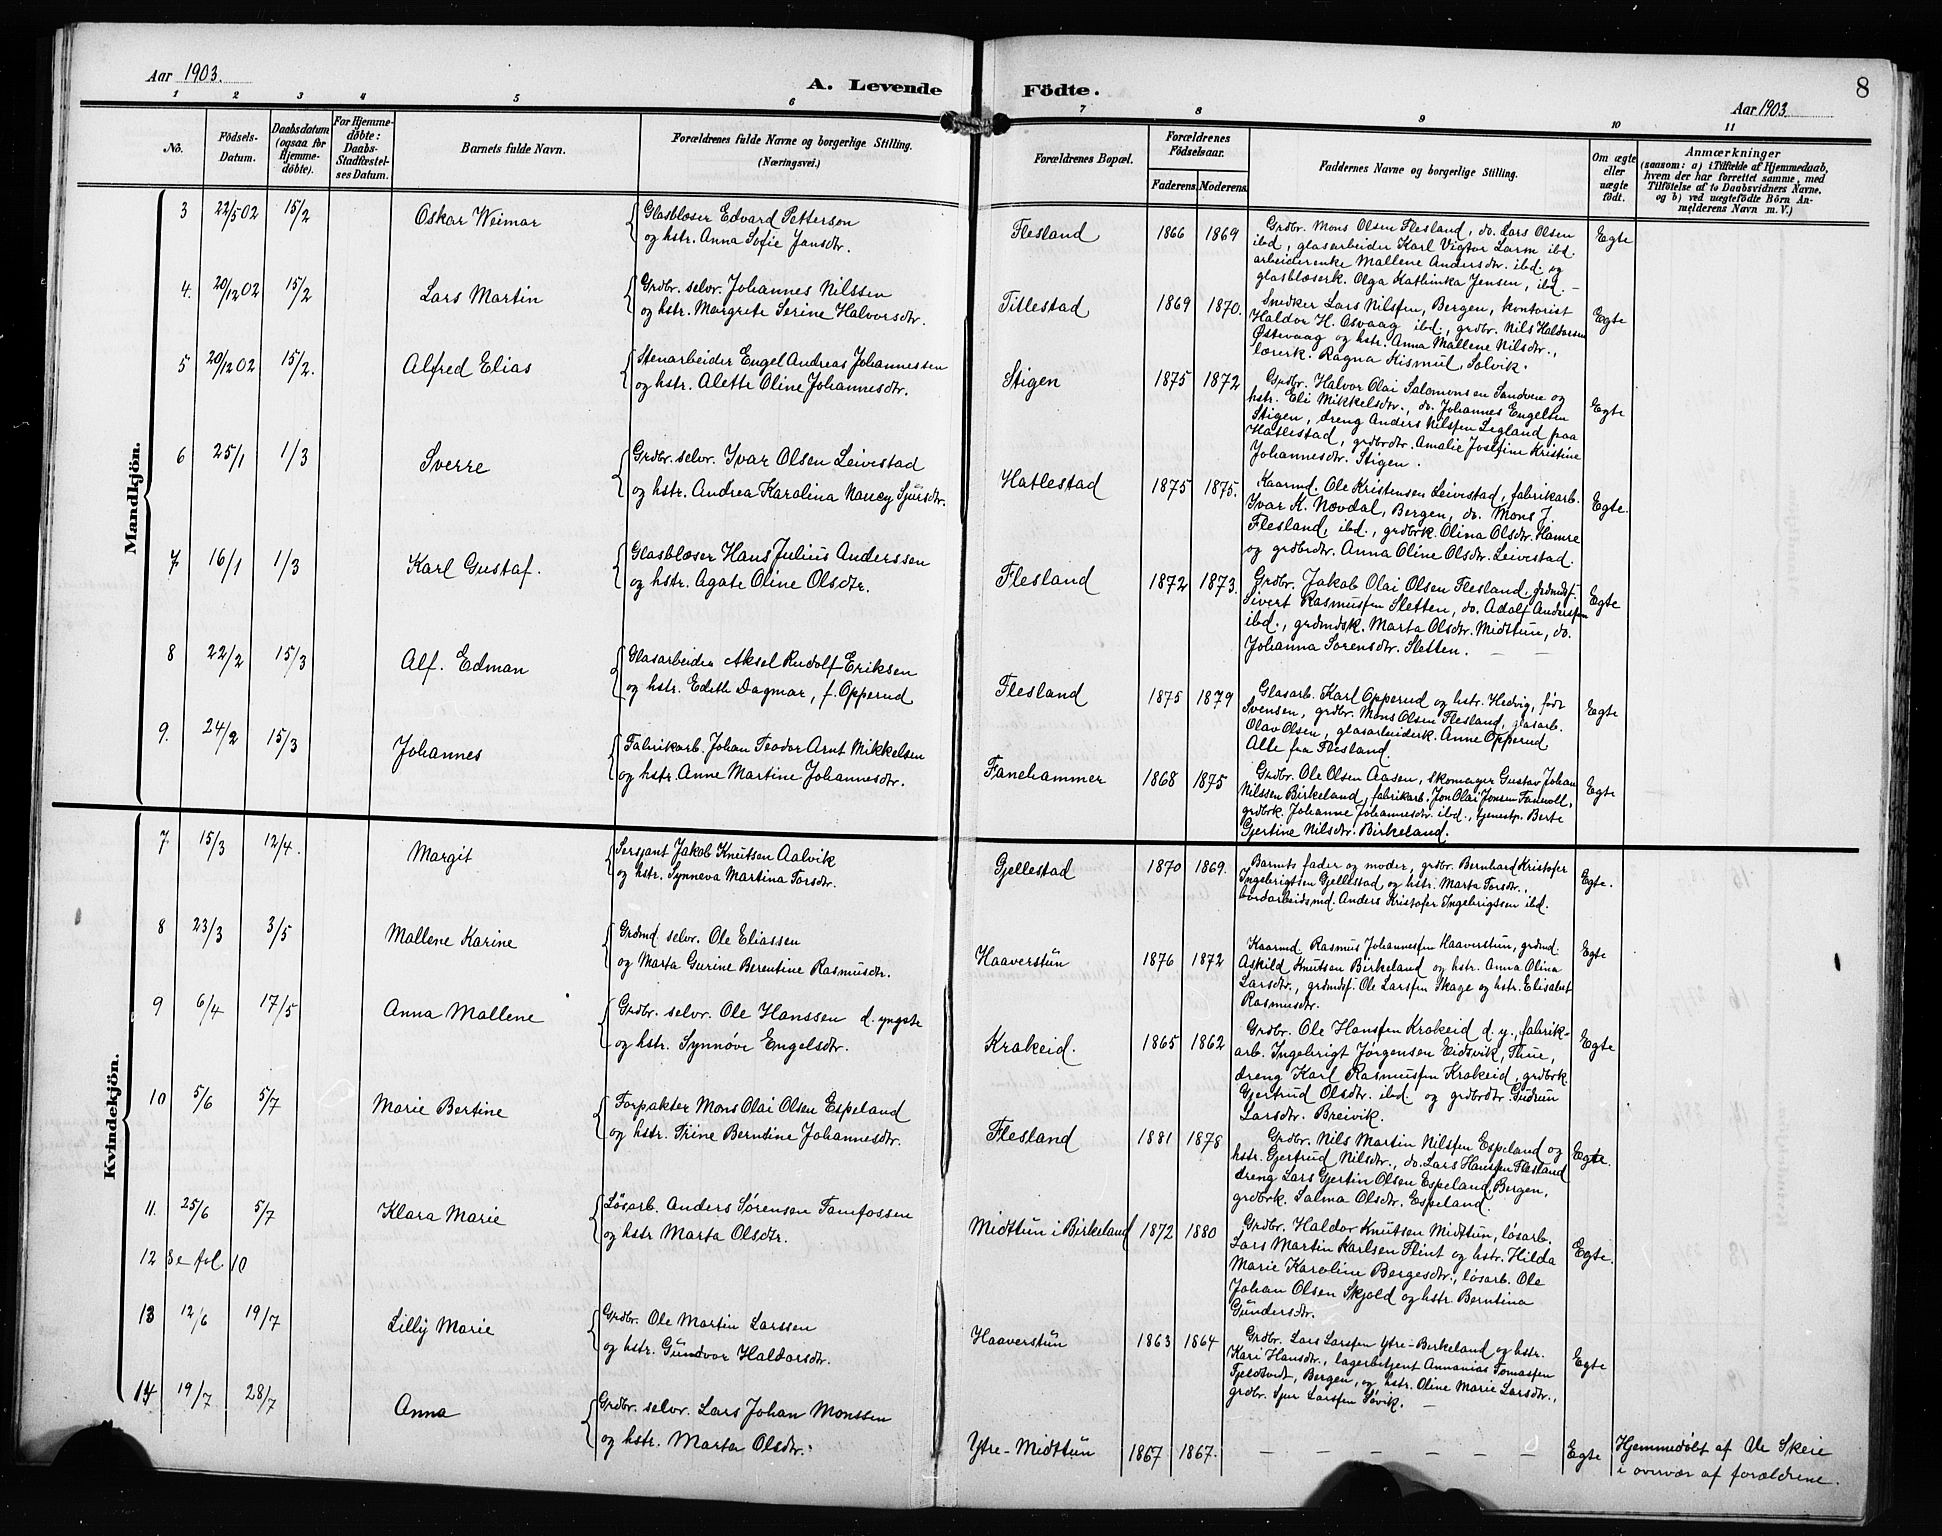 Aar 1903.
A. Levende Födte.
8
Aar 1903
1 2 3 4 5 6 7 8 9 10 11
No.
Födsels-
Datum.
Daabsdatum
(ogsaa for
Hjemme-
døbte).
For Hjemme-
døbte:
Daabs-
Stadfæstel-
ses Datum.
Barnets fulde Navn.
Forældrenes fulde Navne og borgerlige Stilling.
(Næringsvei.)
Forældrenes Bopæl.
Forældrenes
Födselsaar.
Faderens. Moderens.
Faddernes Navne og borgerlige Stilling.
Om ægte
eller
uægte
födt.
Anmærkninger
(saasom: a) i Tilfælde af Hjemmedaab,
hvem der har forrettet samme, med
Tilföielse af to Daabsvidners Navne,
og b) ved uægtefödte Börn An-
melderens Navn m. V.)
Mandkjön.
3 22/5 02 15/2 Oskar Weimar
Glasblæser Edvard Petterson
og hstr. Anna Sofie Jansdtr.
Flesland 1866 1869 Egte
Grdbr. Mons Olsen Flesland, do. Lars Olsen
ibd, glasarbeider Karl Vigtor Larm ibd.
arbeiderenke Mallene Andersdtr. ibd. og
glasblæserk. Olga Kathinka Jensen, ibd. -
4. 20/12 02 15/2 Lars Martin
Grdbr. selvr. Johannes Nilssen
og hstr. Margrete Serine Halvorsdtr.
Titlestad 1869 1870. Egte
Snedker Lars Nilsfen, Bergen, kontorist
Haldor H. Osvaag ibd, grdbr. Nils Haldorsen
Østervaag og hstr. Anna Mallene Nilsdtr.,
lærerk. Ragna Kismul, Solvik.
5 20/12 02 15/2. Alfred Elias
Stenarbeider Engel Andreas Johannessen
og hstr. Alette Oline Johannesdtr.
Stigen 1875 1872 Egte
Grdbr. Halvor Olai Salomonsen Sandven og
hstr. Eli Mikkelsdtr., do. Johannes Engelsen
Stigen, dreng Anders Nilsfen Legland paa
Hatlestad, grdbrdtr. Amalie Josefine Kristine
Johannesdtr. Stigen.
6 25/1 1/3 Sverre
Grdbr. selvr. Ivar Olsen Leivestad
og hstr. Andrea Karolina Nancy Sjursdtr.
Hatlestad 1875 1875. Egte.
Kaarmd. Ole Kristensen Leivestad, fabrikarb.
Ivar K. Nævdal, Bergen, do. Mons J.
Flesland, ibd., grdbrk. Olina Olsdtr. Hamre
og grdbrdtr. Anna Oline Olsdtr. Leivestad.
7 16/1 1/3 Karl Gustaf.
Glasblæser Hans Julius Anderssen
og hstr. Agate Oline Olsdtr.
Flesland 1872 1873. Egte
Grdbr. Jakob Olai Olsen Flesland, grdmdsf.
Sivert Rasmusfen Sletten, do. Adolf Andersfen
ibd., grdmdsk. Marta Olsdtr. Midttun, do.
Johanna Sørensdtr. Sletten. - -
8 22/2 15/3 Alf. Edman
Glasarbeider Aksel Rudolf Eriksen
og hstr. Edith Dagmar, f. Opperud
Flesland 1875 1879 Egte
Glasarb. Karl Opperud og hstr. Hedvig, født
Svensen, grdbr. Mons Olsen Flesland, glasarb.
Olav Olsen, glasarbeiderk. Anne Opperud
Alle fra Flesland.
9. 24/2 15/3 Johannes
Fabrikarb. Johan Teodor Arnt Mikkelsen
og hstr. Anne Martine Johannesdtr.
Fanehammer 1868 1875 Egte
Grdbr. Ole Olsen Aasen, skomager Gustav Johan
Nilssen Birkeland, fabrikarb. Jon Olai Jonsen Fannoll,
grdbrk. Johanne Johannesdtr. ibd., tjenestp. Berte
Gjertine Nilsdtr. Birkeland.
Kvindekjön.
7. 15/3 12/4. Margit
Sersjant Jakob Knutsen Aalvik
og hstr. Synneva Martina Torsdtr.
Gjellestad 1870 1869. Egte.
Barnets fader og moder, grdbr. Bernhard Kristofer
Ingebrigtsen Gjellestad og hstr. Marta Torsdtr.,
Anders Kristofer Ingebrigtsen ibd.
8 23/3 3/5 Mallene Karine
Grdmd selvr. Ole Eliassen
og Marta Gurine Berentine Rasmusdtr.
Haaverstun 1876 1872 Egte
Kaarmd. Rasmus Johannesfen Haaverstun, grdmd.
Askild Knutsen Birkeland og hstr. Anna Olina
Larsdtr., grdmdsf. Ole Larsfen Skage og hstr. Elisabet
Rasmusdtr.
9 6/4 17/5 Anna Mallene
Grdbr. selvr. Ole Hanssen d. yngste
og hstr. Synnøve Engelsdtr.
Krokeid. 1865 1862 Egte
Grdbr. Ole Hansfen Krokeid d. y., fabrik-
arb. Ingebrigt Jørgensen Eidsvik, Flue,
dreng Karl Rasmusfen Krokeid, grdbrk.
Gjertrud Olsdtr. ibd. og grdbrdtr. Gudrun
Larsdtr. Breivik.
10 5/6 5/7 Marie Bertine
Forpakter Mons Olai Olsen Espeland
og hstr. Trine Berntine Johannesdtr.
Flesland 1881 1878 Egte.
Grdbr. Nils Martin Nilsfen Espeland og
hstr. Gjertrud Nilsdtr., do. Lars Hansfen Flesland
dreng Lars Gjertin Olsen Espeland, Bergen,
grdbrk. Salma Olsdtr. Espeland.
11. 25/6 5/7 Klara Marie
Løsarb. Anders Sørensen Tamfossen
og hstr Marta Olsdtr.
Midttun i Birkeland 1872 1880 Egte.
Grdbr. Haldor Knutsen Midttun, løsarb.
Lars Martin Karlsen Flint og hstr. Hilda
Marie Karoline Bergesdtr., løsarb. Ole
Johan Olsen Skjold og hstr. Berntina
Gundersdtr.
12 Se fol. 10
13 12/6 19/7 Lilly Marie
Grdbr. Ole Martin Larssen
og hstr. Gundvor Haldorsdtr.
Haaverstun 1863 1864 Egte
Grdbr. Lars Larsfen Ytre-Birkeland og hstr.
Kari Hansdtr., lagerbetjent Annanias Tomasfen
Fjeldtvedt, Bergen, og hstr. Oline Marie Larsdtr.,
grdbr. Sjur Larsfen Søvik. -
14 19/7 28/7 Anna
Grdbr. selvr. Lars Johan Monssen
og hstr. Marta Olsdtr.
Ytre-Midttun 1867 1867. - - - - - - Egte
Hjemmedøbt af Ole Skeie
i overvær af forældrene.